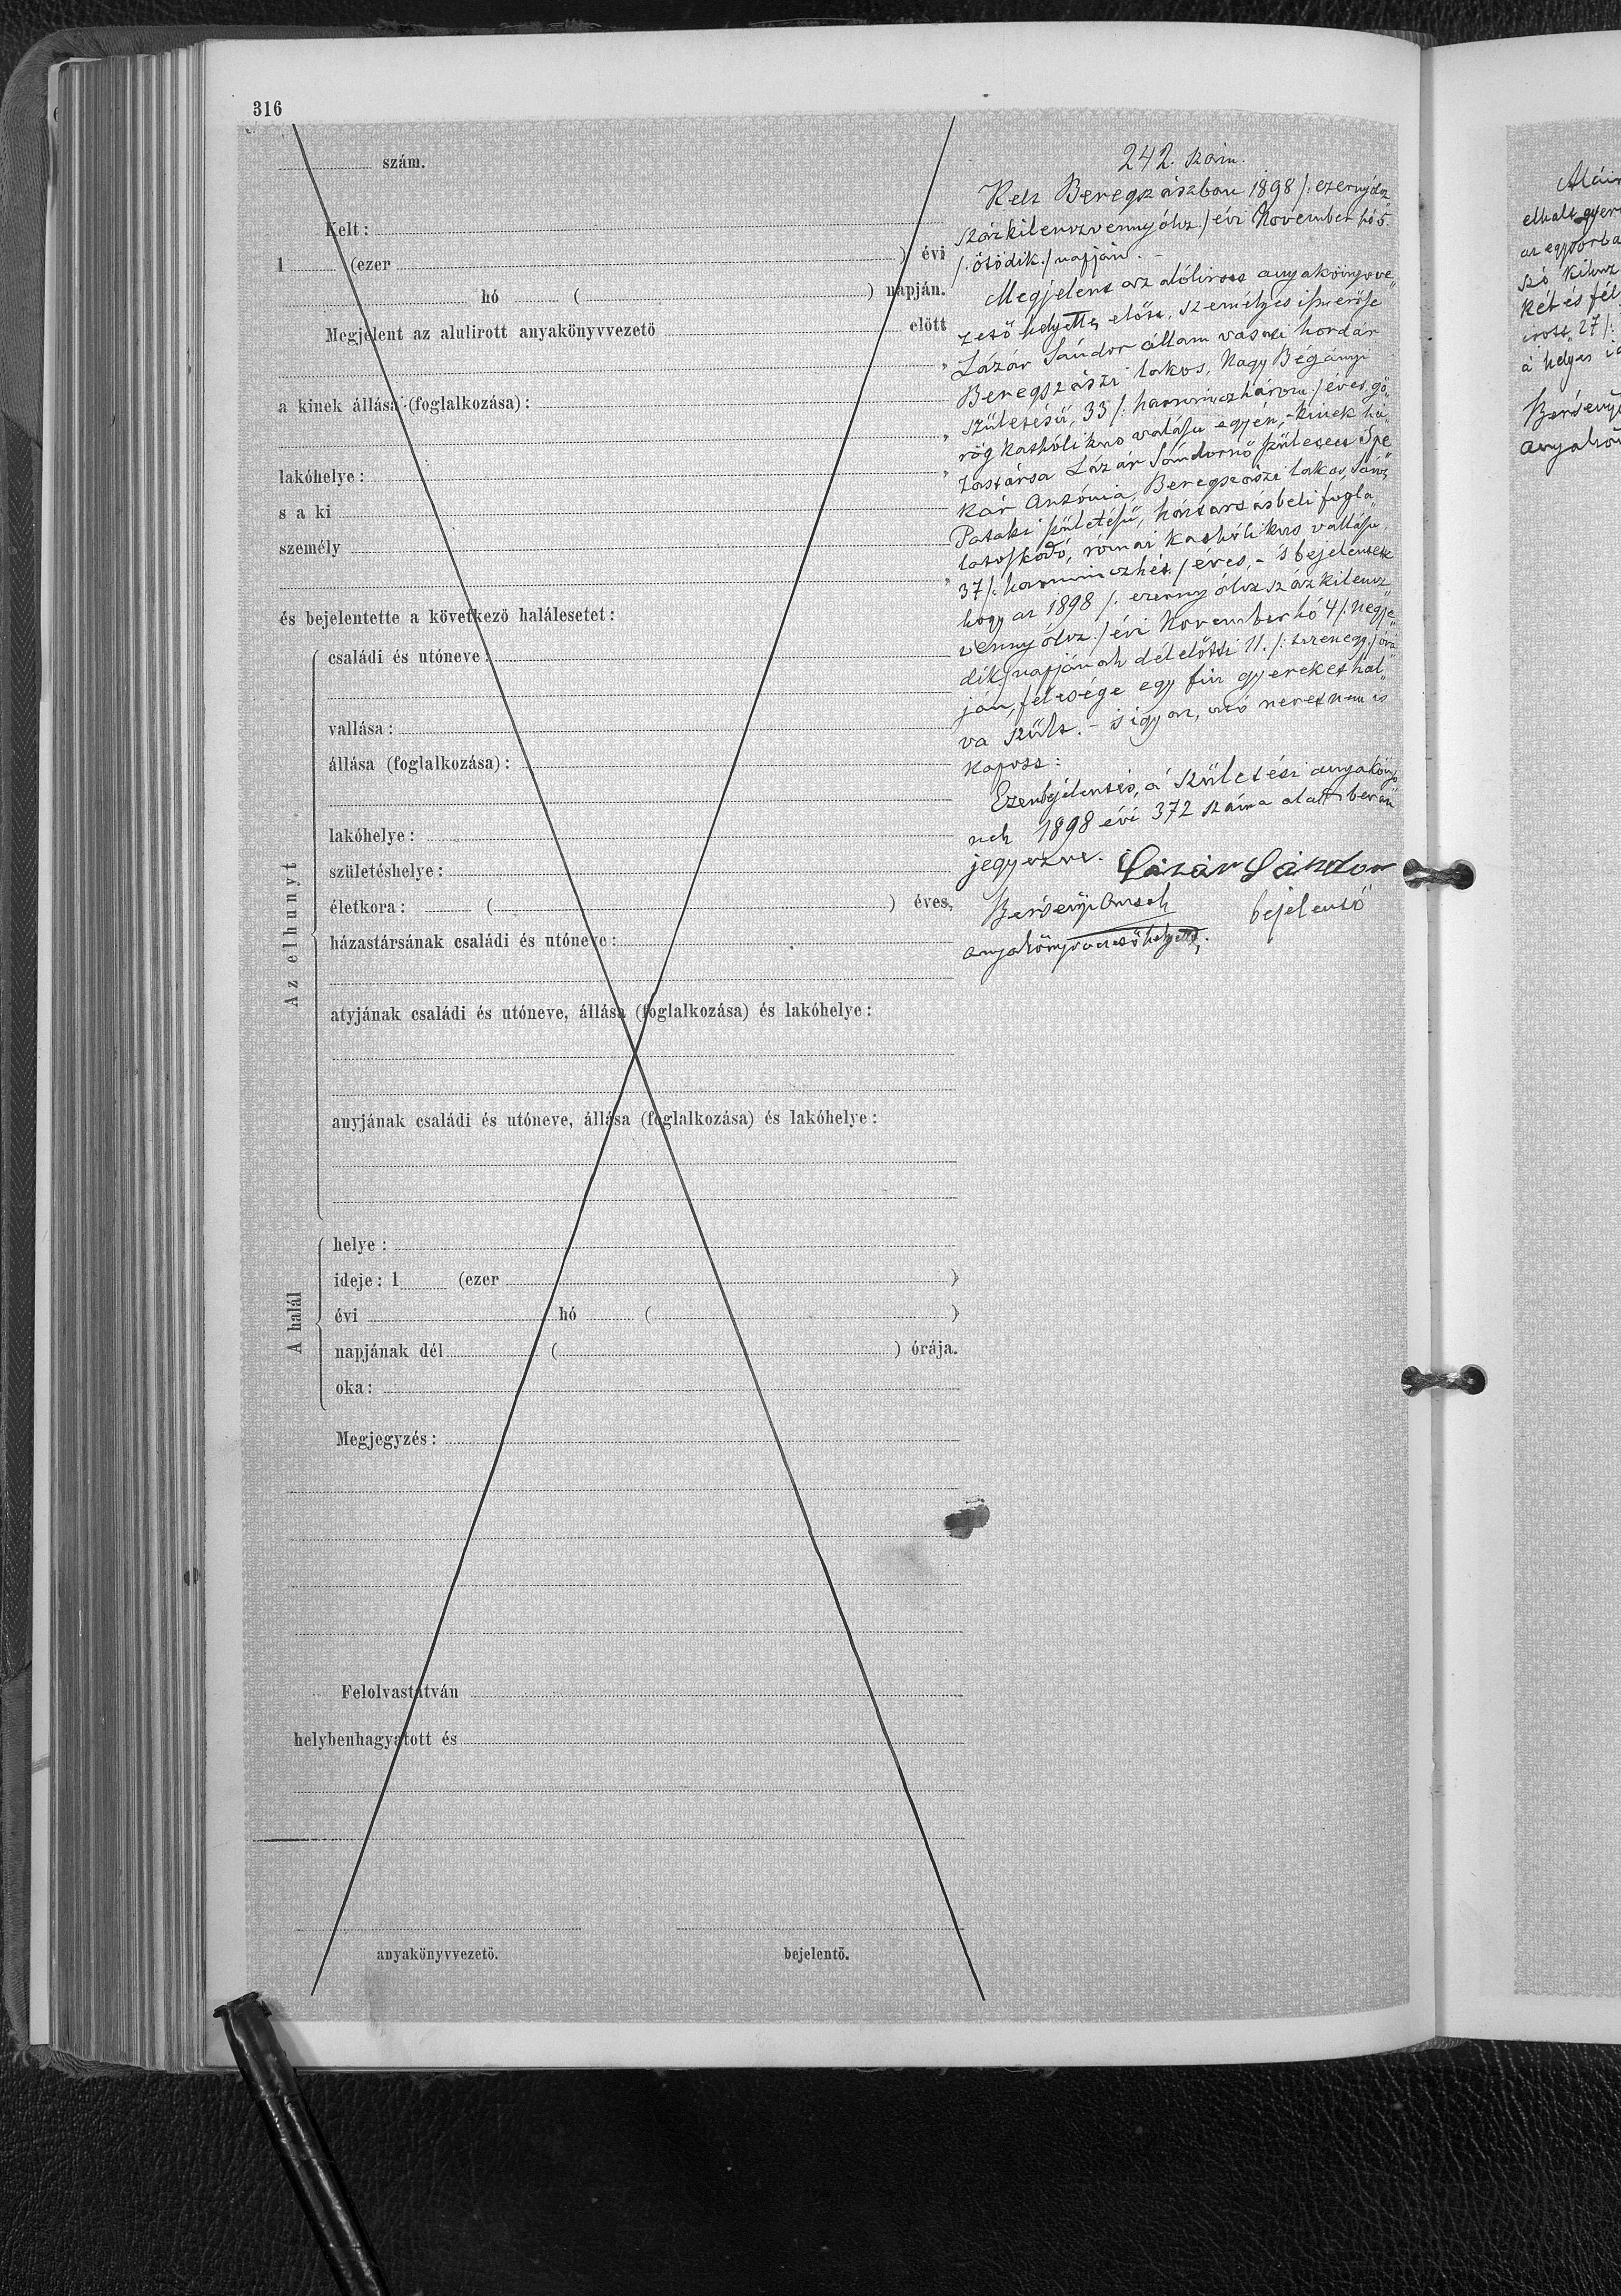 316
szám.
Kelt:
1 (ezer ) évi
hó ( ) napján.
Megjelent az alulirott anyakönyvvezető előtt
,
a kinek állása (foglalkozása):
,
lakóhelye: ,
s a ki
személy
,
és bejelentette a következő halálesetet:
Az elhunyt
családi és utóneve:
vallása:
állása (foglalkozása):
lakóhelye:
születéshelye:
életkora: ( ) éves,
házastársának családi és utóneve:
atyjának családi és utóneve, állása (foglalkozása) és lakóhelye:
anyjának családi és utóneve, állása (foglalkozása) és lakóhelye:
A halál
helye:
ideje: 1 (ezer )
évi hó ( )
napjának dél ( ) órája.
oka:
Megjegyzés:
Felolvastatván
helybenhagyatott és
anyakönyvvezető. bejelentő.
242. szám.
Kelt Beregszászban 1898 /: ezernyólcz
százkilenczvennyólcz :/ évi November hó 5.
/: ötödik :/ napján. –
Megjelent az alólirott anyakönyvve„
zető helyettes előtt, személyes ismerőse
Lázár Sándor állam vasuti hordár
Beregszászi lakos, Nagy Bégányi
születésű, 33 /: harminczhárom :/ éves, gö„
rög katholikus vallásu egyén, – kinek há„
zastársa Lázár Sándornő született Spe„
kár Antónia, Beregszászi lakos, Sáros„
Pataki születésű, háztartásbeli fogla„
latoskodó, római katholikus vallásu,
37 /: harminczhét :/ éves, – s bejelentette
hogy az 1898 /: ezernyólczszázkilencz
vennyólcz :/ évi November hó 4 /: negye„
dik :/ napjának délelőtti 11. /: tizenegy :/ órá„
ján, felesége egy fiu gyereket hal„
va szült. – s igy az, utó nevet nem is
kapott:
Ezen bejelentés, a születési anyakönyv
nek 1898 évi 372 száma alatt be van
jegyezve. Lázár Sándor
bejelentő
anyakönyvvezető helyettes.
elhalt
szó
két és fél
27 /:
a helyes